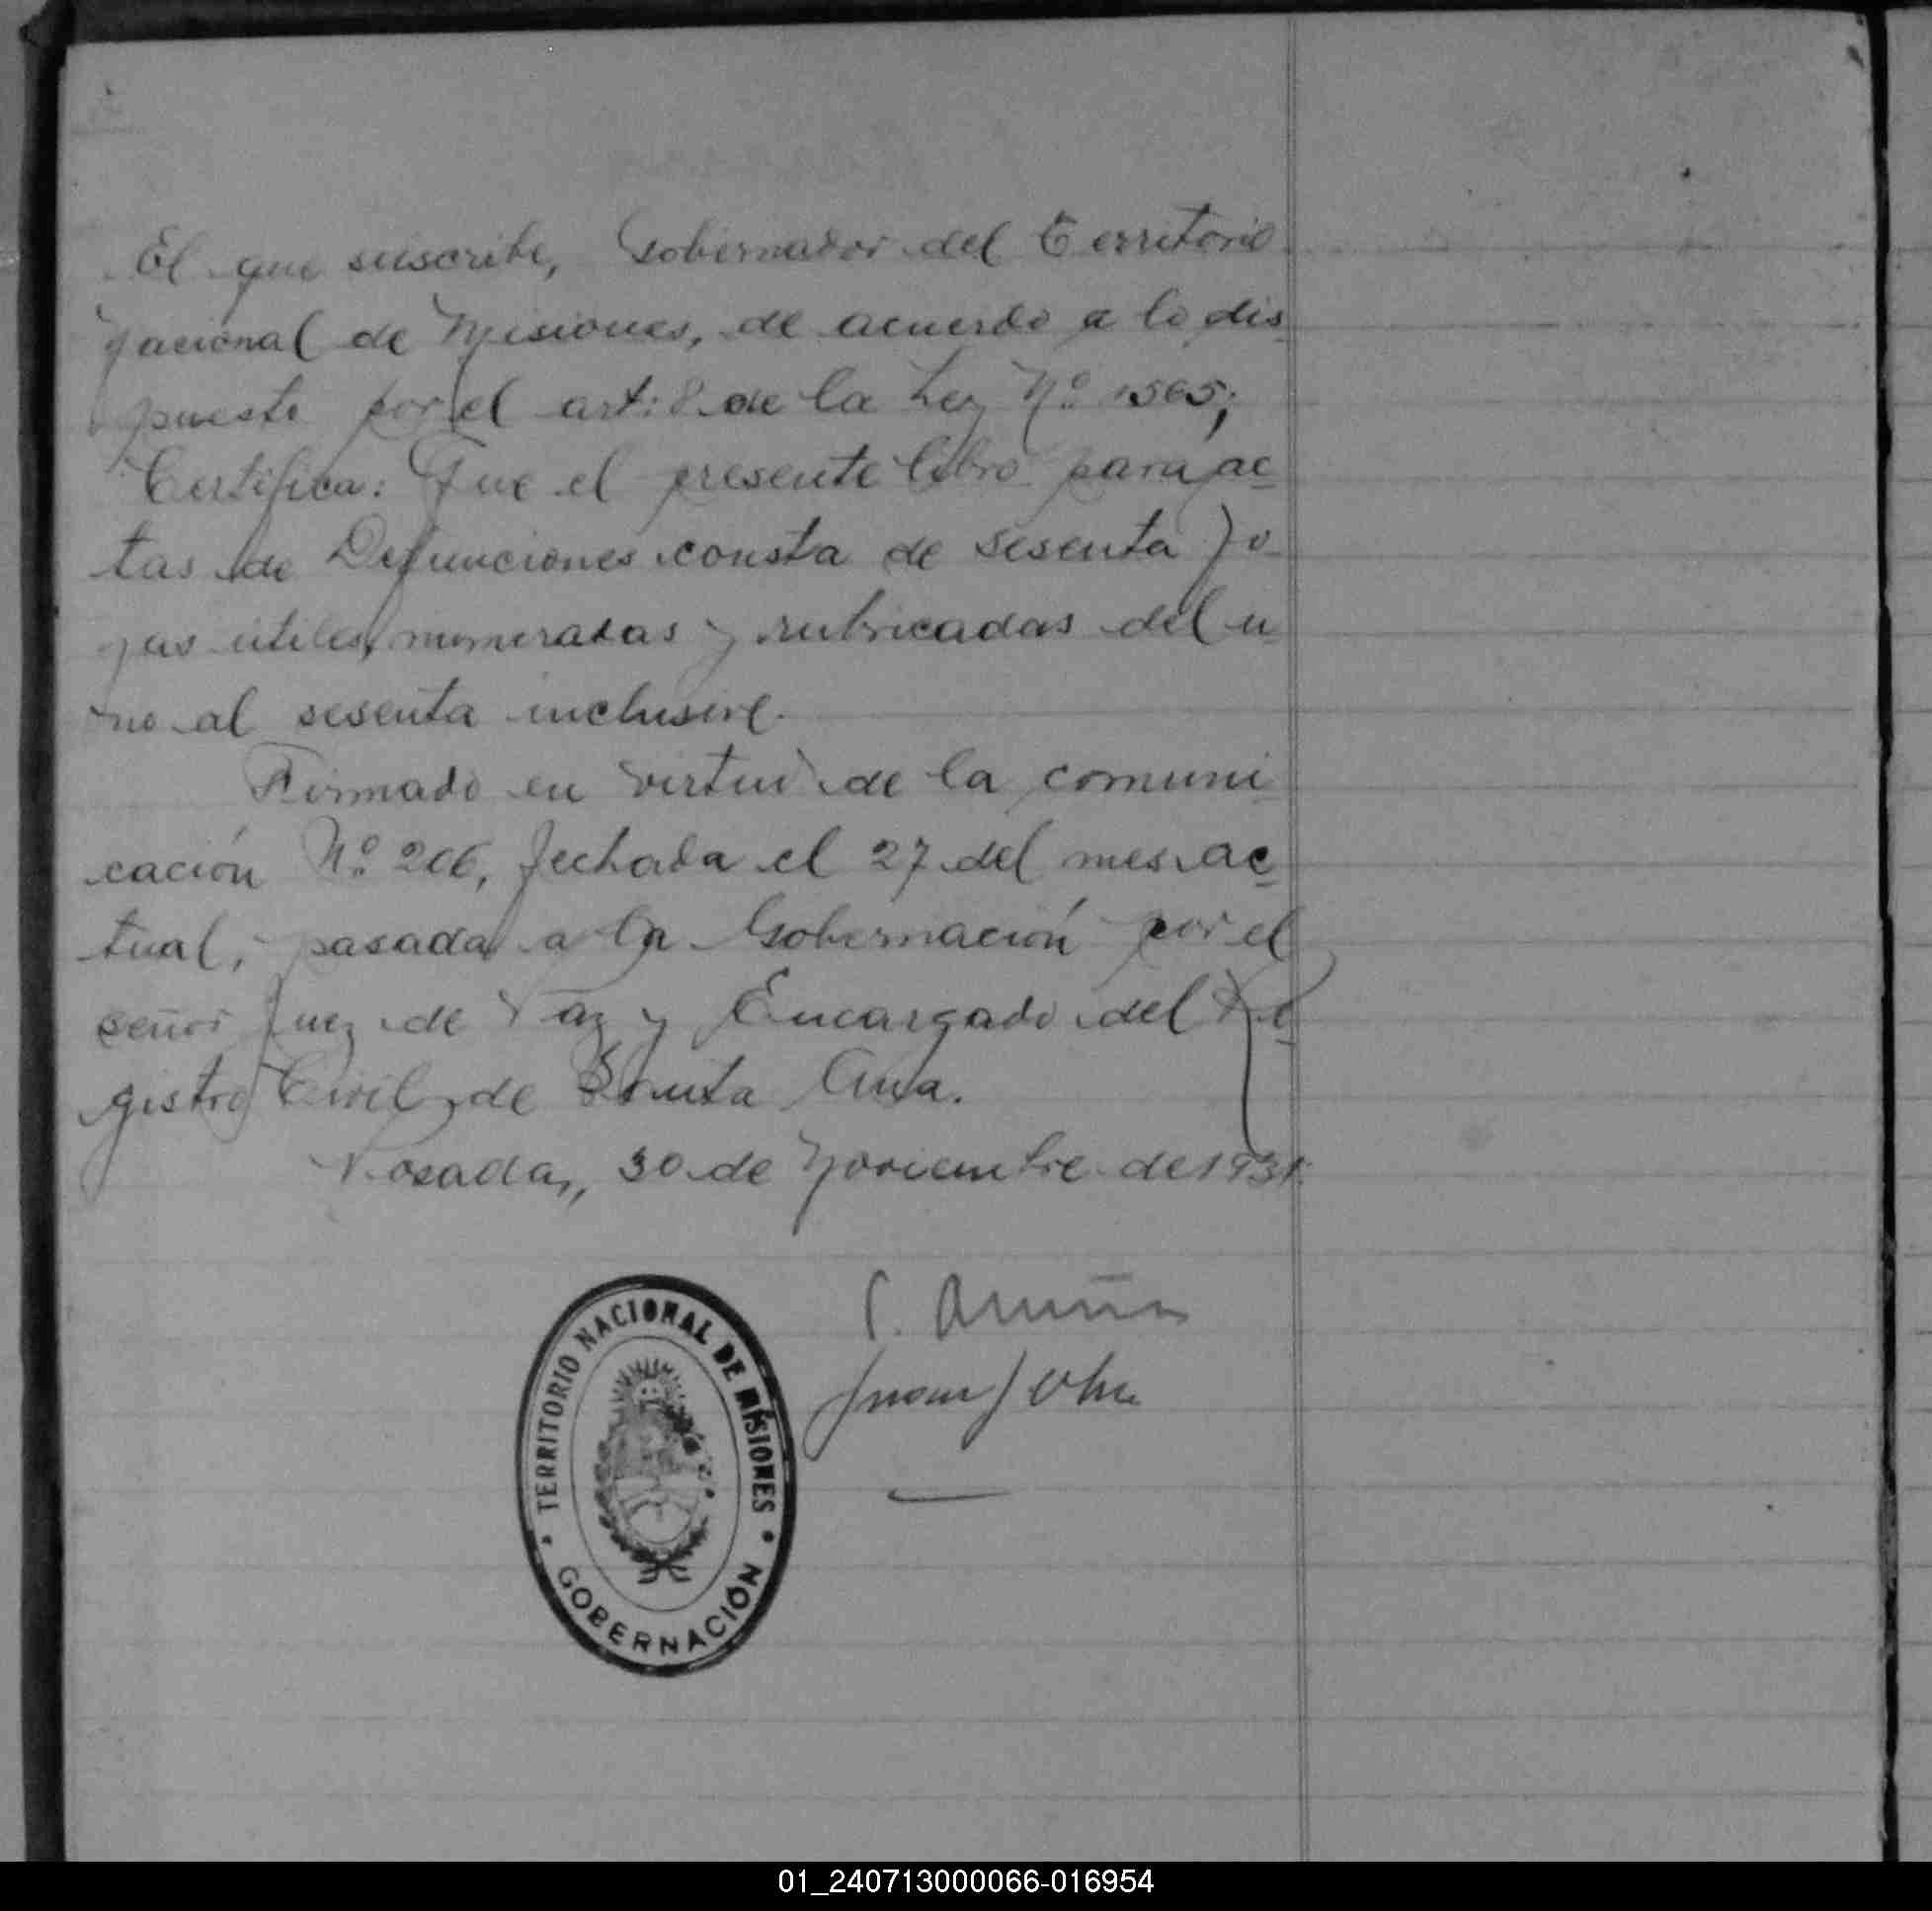 El que suscribe, Gobernador del Territorio
Nacional de Misiones, de acuerdo a lo dis
puesto por el art: 8 de la Ley Nº 1565;
Certifica: Que el presente libro para ac
tas de Defunciones consta de sesenta fo
jas útiles, numeradas y rubricadas del u
no al sesenta inclusive.
Firmado en virtud de la comuni
cación Nº 206, fechada el 27 del mes ac
tual, pasada a la Gobernación por el
señor Juez de Paz y Encargado del Re
gistro Civil de Santa Ana.
Posadas, 30 de Noviembre de 1931.
TERRITORIO NACIONAL DE MISIONES
GOBERNACIÓN
01_240713000066-016954